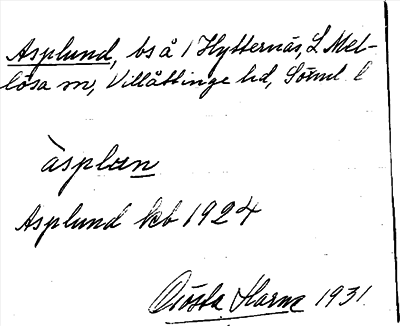 Asplund, bs å / Hytternäs, L Mel-
lösa sn, Villåttinge hd, Sörml. l
àsplœn
Asplund kb 1924
Gösta Harne 1931